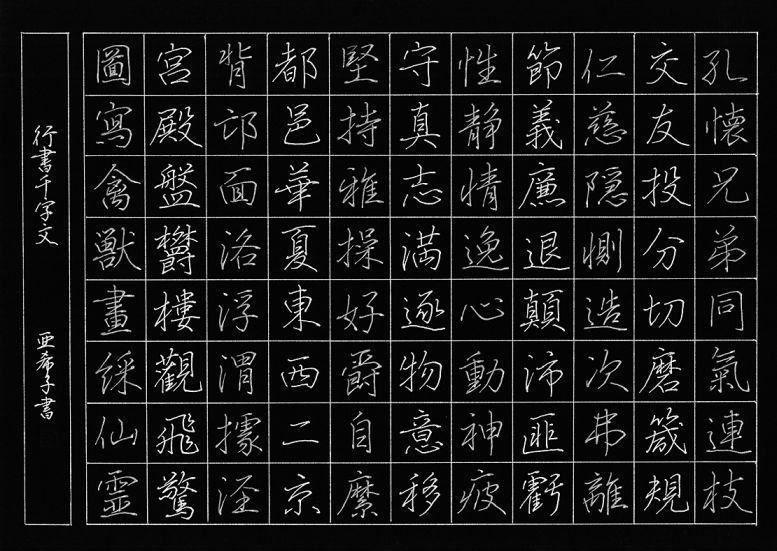 孔懐兄弟同氣連枝
交友投分切磨箴規
仁慈隠惻造次弗離
節義廉退顛沛匪虧
性静情逸心動神疲
守真志満逐物意移
堅持雅操好爵自縻
都邑華夏東西二京
背邙面洛浮渭據涇
宮殿盤欝樓觀飛驚
圖寫禽獣畫綵仙霊
行書千字文 亜希子書